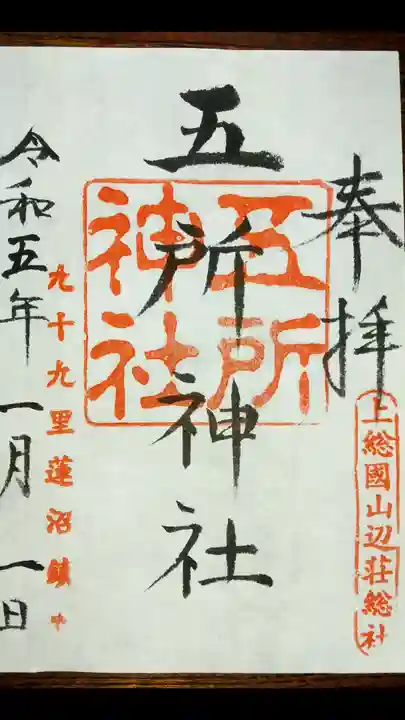 奉拝
上総國山辺荘総社
五所神社
五所
神社
九十九里蓮沼鎮守
令和五年一月一日